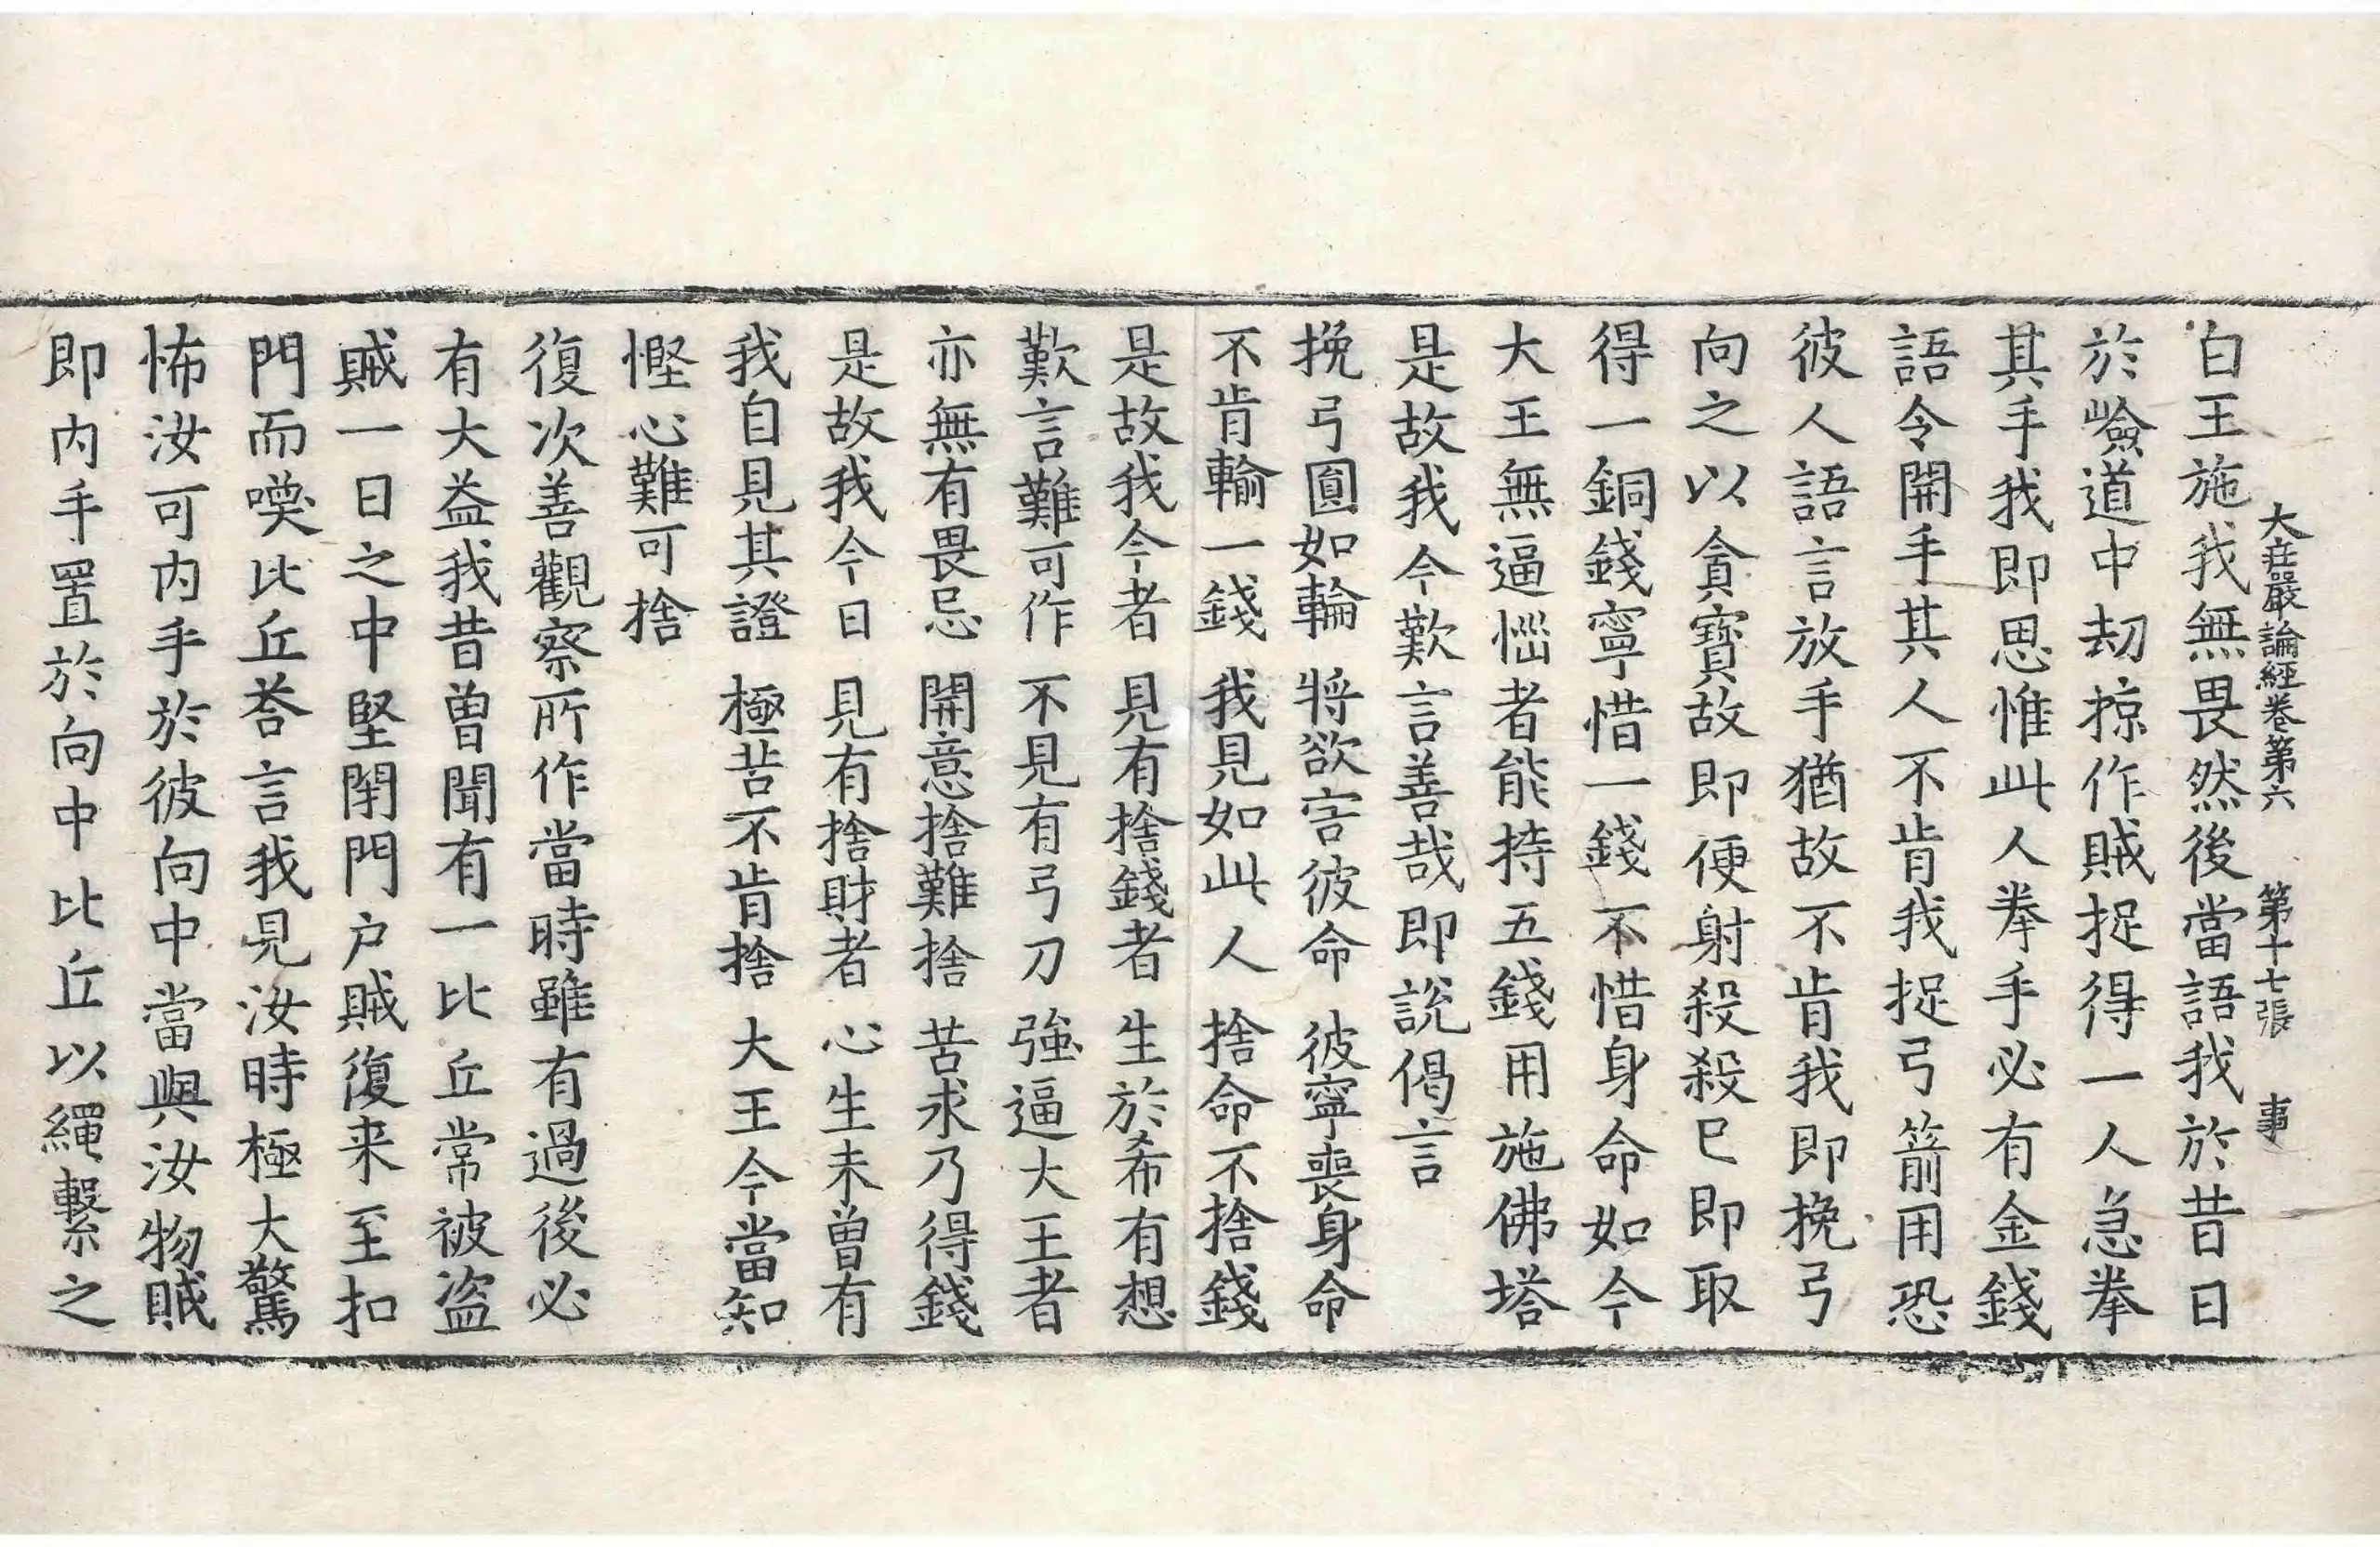 大莊嚴論經卷第六 第十七張 事
白王施我無畏然後當語我於昔日
於嶮道中刧掠作賊捉得一人急拳
其手我即思惟此人拳手必有金錢
語令開手其人不肯我捉弓箭用恐
彼人語言放手猶故不肯我即挽弓
向之以貪寶故即便射殺殺已即取
得一銅錢寧惜一錢不惜身命如今
大王無逼惱者能持五錢用施佛塔
是故我今歎言善哉即說偈言
挽弓圓如輪 將欲害彼命 彼寧喪身命
不肯輸一錢 我見如此人 捨命不捨錢
是故我今者 見有捨錢者 生於希有想
歎言難可作 不見有弓刀 強逼大王者
亦無有畏忌 開意捨難捨 苦求乃得錢
是故我今日 見有捨財者 心生未曾有
我自見其證 極苦不肯捨 大王今當知
慳心難可捨
復次善觀察所作當時雖有過後必
有大益我昔曾聞有一比丘常被盜
賊一日之中堅閉門户賊復来至扣
門而喚比丘荅言我見汝時極大驚
怖汝可内手於彼向中當與汝物賊
即内手置於向中比丘以繩繫之